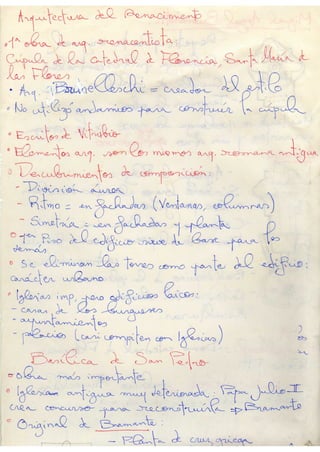 Arquitectura del Renacimento
1ª obra de arq. renacentista:
Cúpula de la catedral de Florencia, Santa Maria de
las Flores
• Arq. Bruiselleschi = creador del estilo
• No utilizó andamios para construir la cúpula
• Escritos de Vitrubio
• Elementos arq. son los mismos arq. romana antigua
• Descubrimientos de composicion:
- Division áurea
- Ritmo = en fachadas (Ventanas, columnas)
- Simetria = en fachadas y planta
• 1er Piso del edificio sirve de base para los
demás
• Se eliminan las torres como parte del edificio:
carácter urbano
• Iglesias imp. pero edificios laicos:
- casas de los burgueses
- ayuntamientos
- palacios (casi compiten con Iglesias)
Basilica de San Pedro
• Obra más importante
• Iglesia antigua muy deteriorada. Papa Julio II
crea concurso para reconstruirla → Bramante
• Original de Bramante:
- Planta de cruz griega